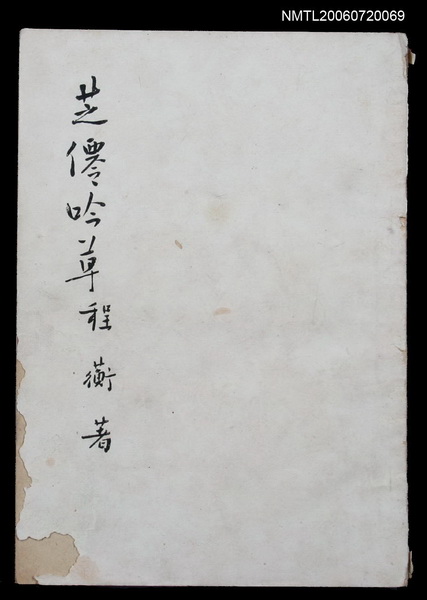 NMTL20060720069
芝僊吟草 程衡著